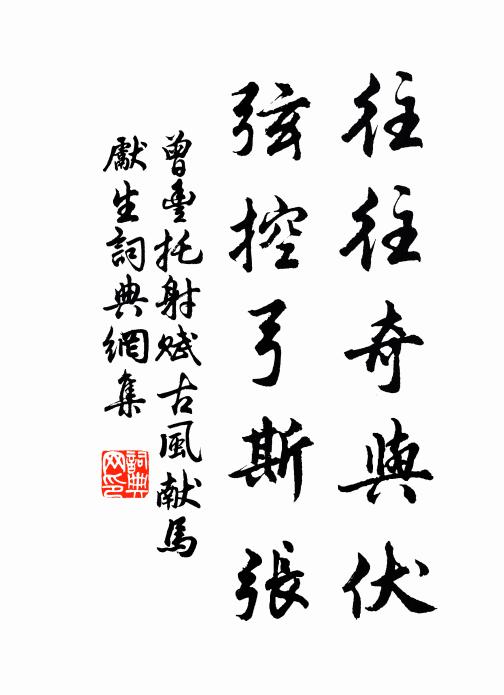 往往奇與伏
弦控弓斯張
曾豐托射賦古風獻馬
獻生詞典網集
詞典
网印